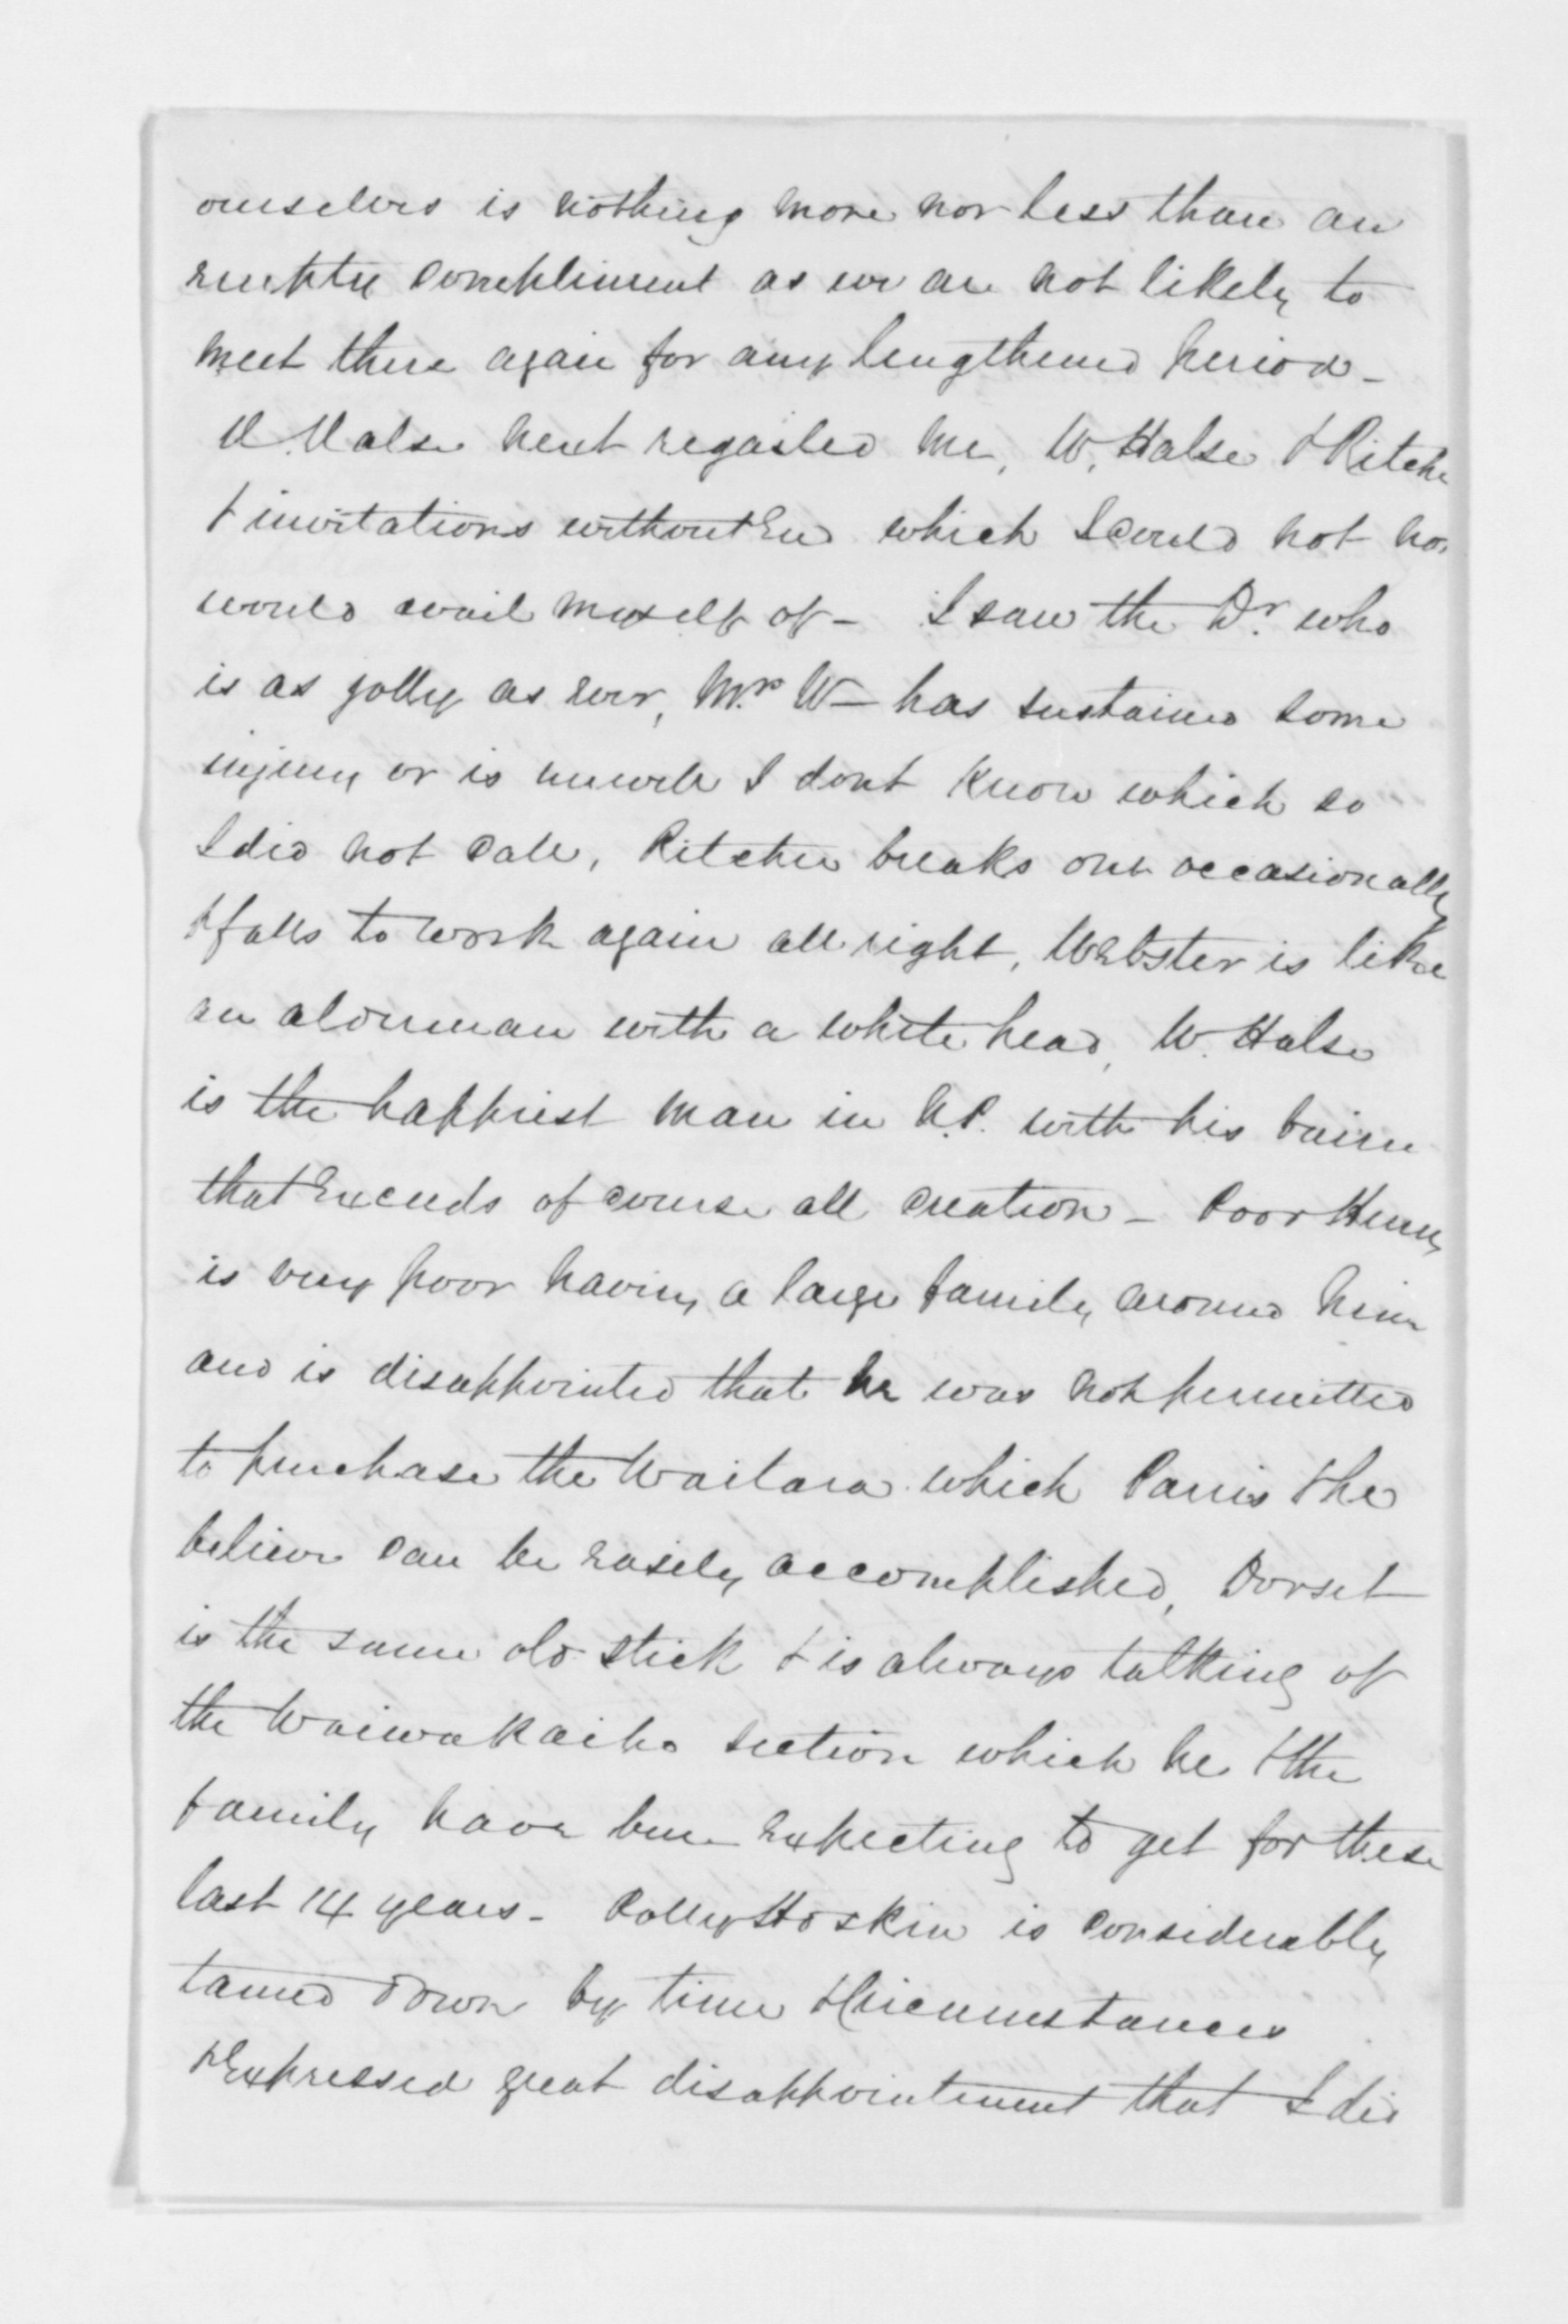 ourselves is nothing more nor less than an
empty compliment as we are not likely to
meet there again for any lengthened period –
Halse next regaled me, W. Halse & Ritchie
& invitations without End which I could not nor
would avail myself of – I saw the Dr. who
is as jolly as ever, Mrs W – has sustained some
injury or is unwell I dont Know which so
I did not call, Ritchie breaks out occasionally
& falls to work again all right, Webster is like
an alderman with a white head, W. Halse
is the happiest man in N.P. with his bairn
that Exceeds of course all creation – Poor Henry
is very poor having a large family around him
and is disappointed that he was not permitted
to purchase the Waitara which Parris & he
believe can be easily accomplished, Dorset
is the same old stick & is always talking of
the Waiwakaiho section which he & the
family have been expecting to get for these
last 14 years – Polly Hoskin is considerably
tamed down by time & circumstances
& Expressed great disappointment that I did